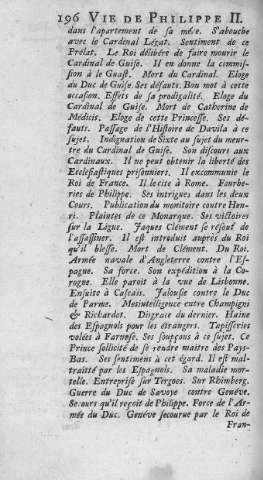 196 VIE DE PHILIPPE II.
dans l'apartement de sa mére. S'abouche
avec le Cardinal Légat. Sentiment de ce
Prélat. Le Roi délibére de faire mourir le
Cardinal de Guise. Il en donne la commis-
sion à le Guast. Mort du Cardinal. Eloge
du Duc de Guise. Ses défauts. Bon mot à cette
occasion. Effets de sa prodigalité. Eloge du
Cardinal de Guise. Mort de Catherine de
Médicis. Eloge de cette Princesse. Ses dé-
fauts. Passage de l'Histoire de Davila à ce
sujet. Indignation de Sixte au sujet du meur-
tre du Cardinal de Guise. Son discours aux
Cardinaux. Il ne peut obtenir la liberté des
Ecclesiastiques prisonniers. Il excommunie le
Roi de France. Il le cite à Rome. Fourbe-
ries de Philippe. Ses intrigues dans les deux
Cours. Publication du monitoire contre Hen-
ri. Plaintes de ce Monarque. Ses victoires
sur la Ligue. Jaques Clément se résout de
l'assassiner. Il est introduit auprès du Roi
qu'il blesse. Mort de Clément. Du Roi.
Armée navale d'Angleterre contre l'Es-
pagne. Sa force. Son expédition à la Co-
rogne. Elle paroit à la vue de Lisbonne.
Ensuite à Cascais. Jalousie contre le Duc
de Parme. Mesintelligence entre Champigni
& Richardot. Disgrace du dernier. Haine
des Espagnols pour les étrangers. Tapisseries
volées à Farnese. Ses soupçons à ce sujet. Ce
Prince sollicité de se rendre maitre des Pays-
Bas. Ses sentimens à cet égard. Il est mal-
traitté par les Espagnols. Sa maladie mor-
telle. Entreprise sur Tergoes. Sur Rhimberg.
Guerre du Duc de Savoye contre Genéve.
Secours qu'il reçoit de Philippe. Force de l'Ar-
mée du Duc. Genéve secourue par le Roi de
Fran-